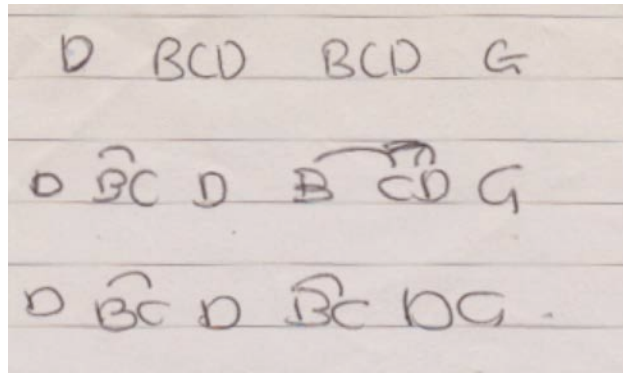 D BCD BCD G
D BC D B CD G
D BC D BC DG.